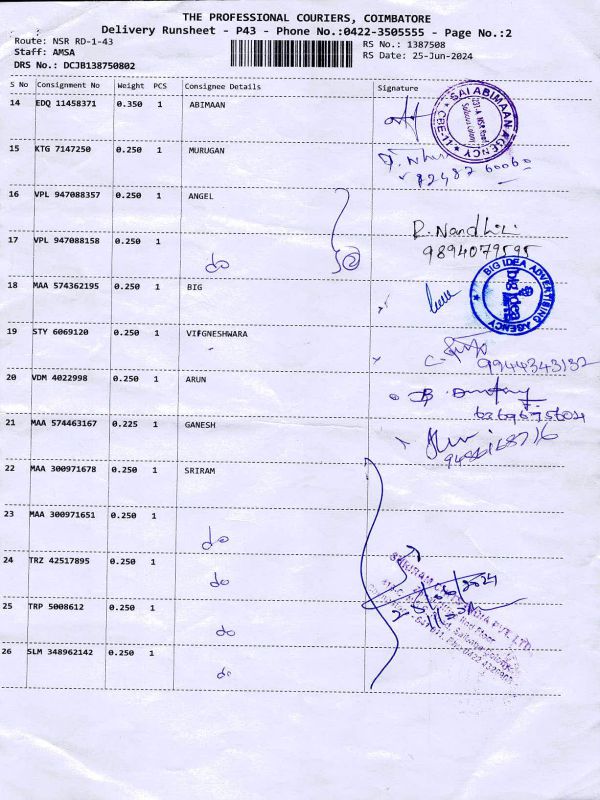 THE PROFESSIONAL COURIERS, COIMBATORE
Delivery Runsheet - P43 - Phone No.:0422-3505555 - Page No.:2
Route: NSR RD-1-43
Staff: AMSA
DRS No.: DCJB138750802
RS No.: 1387508
RS Date: 25-Jun-2024
S No Consignment No Weight PCS Consignee Details Signature
14 EDQ 11458371 0.350 1 ABIMAAN
SAI ABIMAAN AGENCY
CBE-11
15 KTG 7147250 0.250 1 MURUGAN
16 VPL 947088357 0.250 1 ANGEL
17 VPL 947088158 0.250 1 do 2
D. Nandhini
9894079595
18 MAA 574362195 0.250 1 BIG
BIG IDEA ADVERTISING AGENCY
big idea
19 STY 6069120 0.250 1 VIFGNESHWARA
9944343132
20 VDM 4022998 0.250 1 ARUN
21 MAA 574463167 0.225 1 GANESH
22 MAA 300971678 0.250 1 SRIRAM
23 MAA 300971651 0.250 1 do
24 TRZ 42517895 0.250 1 do
25 TRP 5008612 0.250 1 do
26 SLM 348962142 0.250 1 do